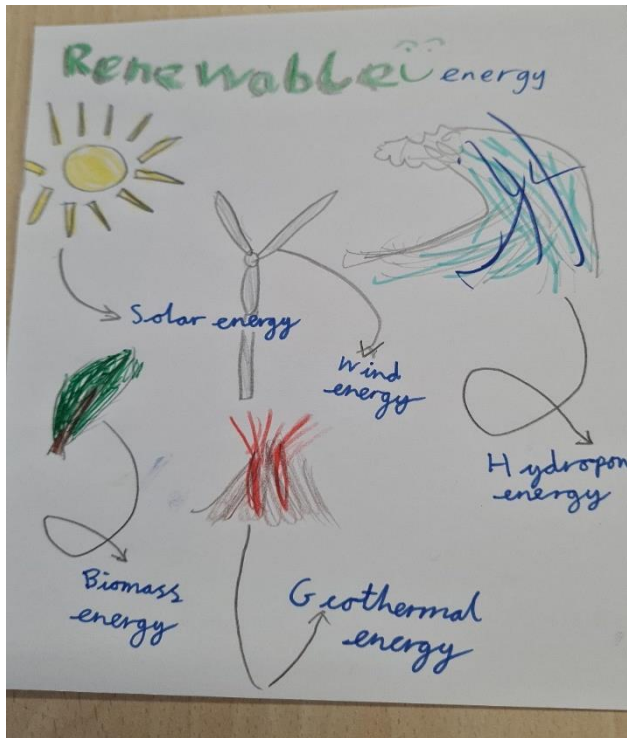 Renewable energy
Solar energy
Wind
energy
Hydropon
energy
Biomass
energy
Geothermal
energy